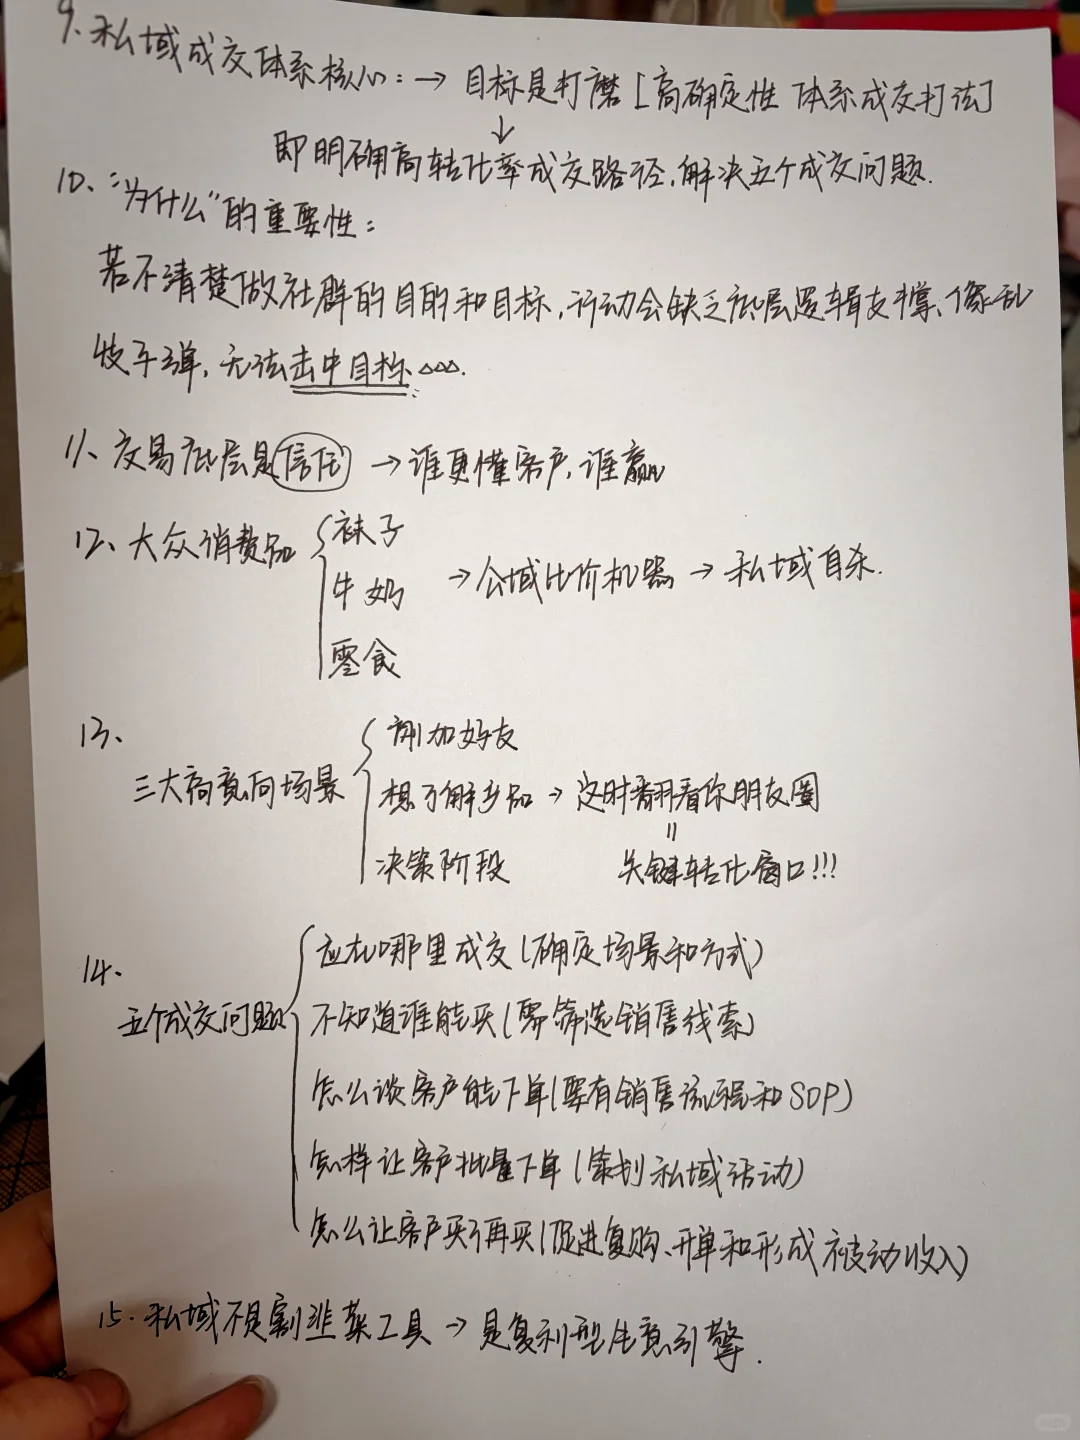 9. 私域成交体系核心：→ 目标是打磨[高确定性 体系成交打法]
↓
即明确高转化率成交路径，解决五个成交问题.
10、“为什么”的重要性：
若不清楚做社群的目的和目标，行动会缺乏底层逻辑支撑、像乱
收子弹，无法击中目标△△△.
11、交易底层是信任 → 谁更懂客户，谁赢
12、大众消费品 { 袜子
牛奶 → 公域比价机器 → 私域自杀.
零食
13、
三大高意向场景 { 刚加好友
想了解产品 → 这时翻看你朋友圈
"
决策阶段 关键转化窗口!!!
14、
五个成交问题 { 应在哪里成交(确定场景和方式)
不知道谁能买(需筛选销售线索)
怎么谈客户能下单(要有销售流程和SOP)
怎样让客户批量下单(策划私域活动)
怎么让客户买了再买(促进复购、开单和形成被动收入)
15. 私域不是割韭菜工具 → 是复利型生意引擎.